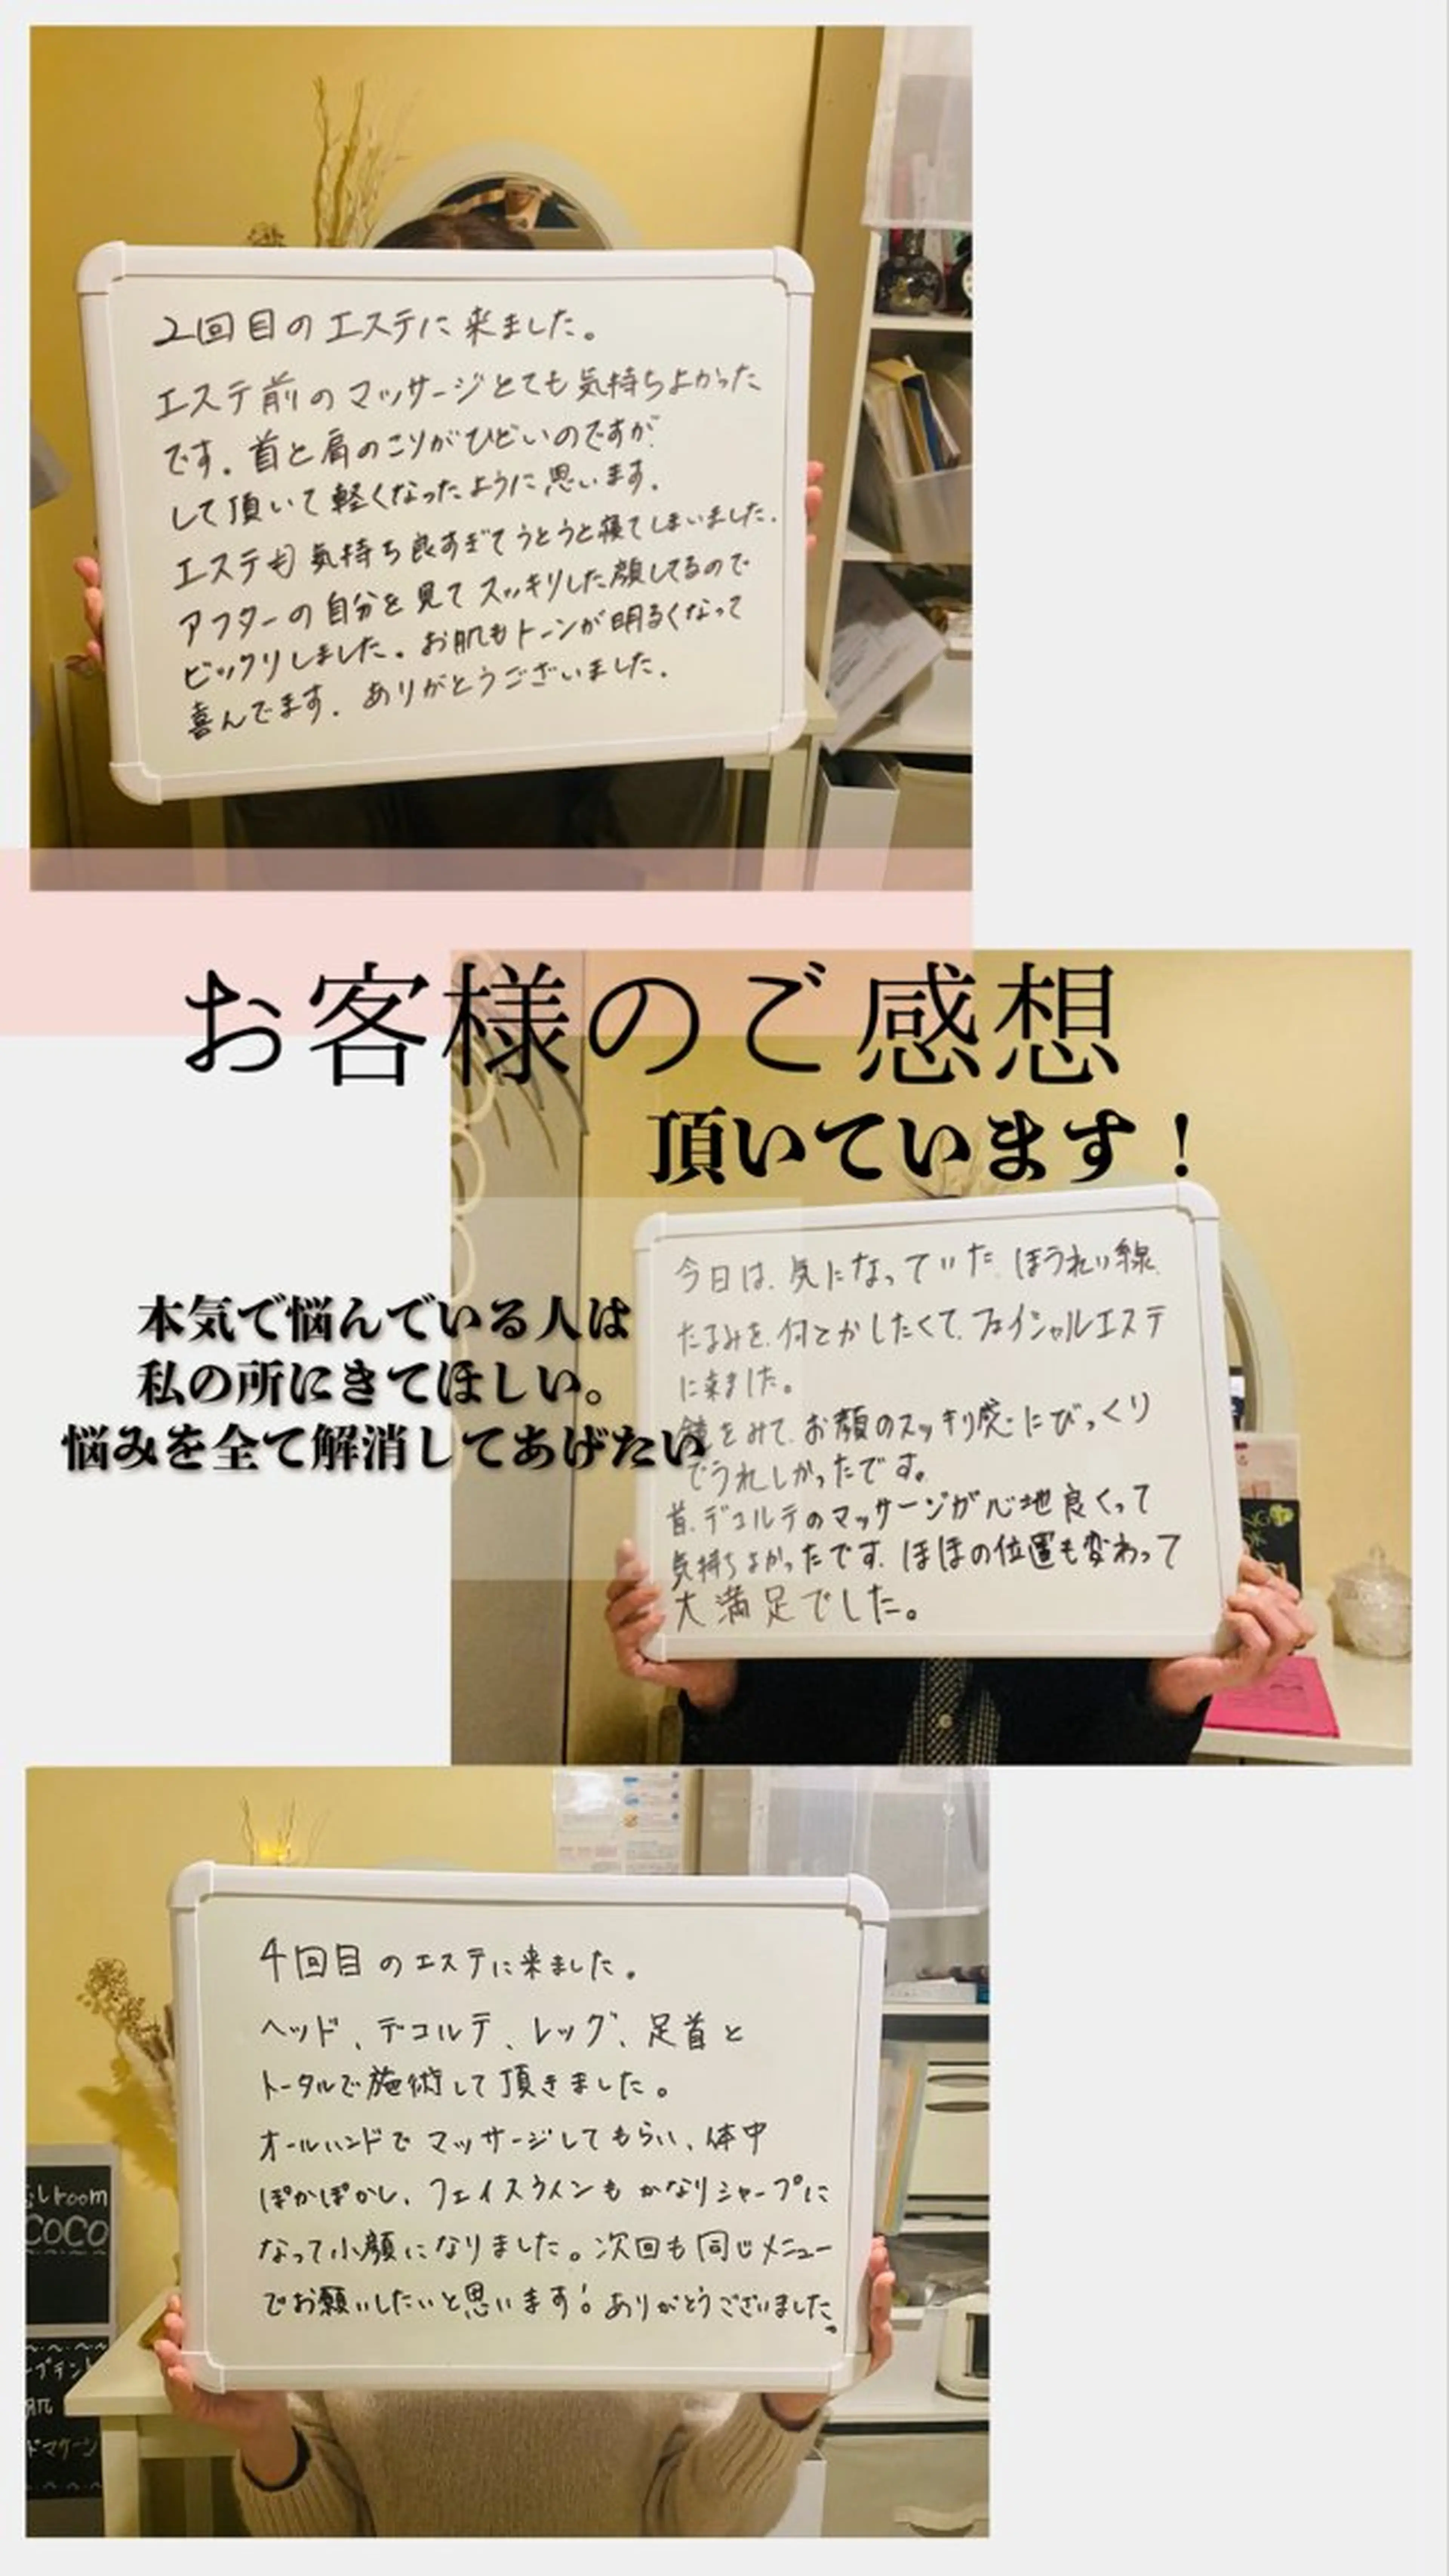 2回目のエステに来ました。
エステ前のマッサージとても気持ちよかった
です。首と肩のこりがひどいのですが
して頂いて軽くなったように思います。
エステも気持ち良すぎてうとうと寝てしまいました。
アフターの自分を見てスッキリした顔してるので
ビックリしました。お肌もトーンが明るくなって
喜んでます。ありがとうございました。
お客様のご感想
頂いています！
本気で悩んでいる人は
私の所にきてほしい。
悩みを全て解消してあげたい
今日は、気になっていた、ほうれい線、
たるみを、何とかしたくて、フェイシャルエステ
に来ました。
鏡をみて、お顔のスッキリ感にびっくり
でうれしかったです。
首、デコルテのマッサージが心地良くって
気持ちよかったです。ほほの位置も変わって
大満足でした。
4回目のエステに来ました。
ヘッド、デコルテ、レッグ、足首と
トータルで施術して頂きました。
オールハンドでマッサージしてもらい、体中
ぽかぽかし、フェイスラインもかなりシャープに
なって小顔になりました。次回も同じメニュー
でお願いしたいと思います！ありがとうございました。
room
COCO